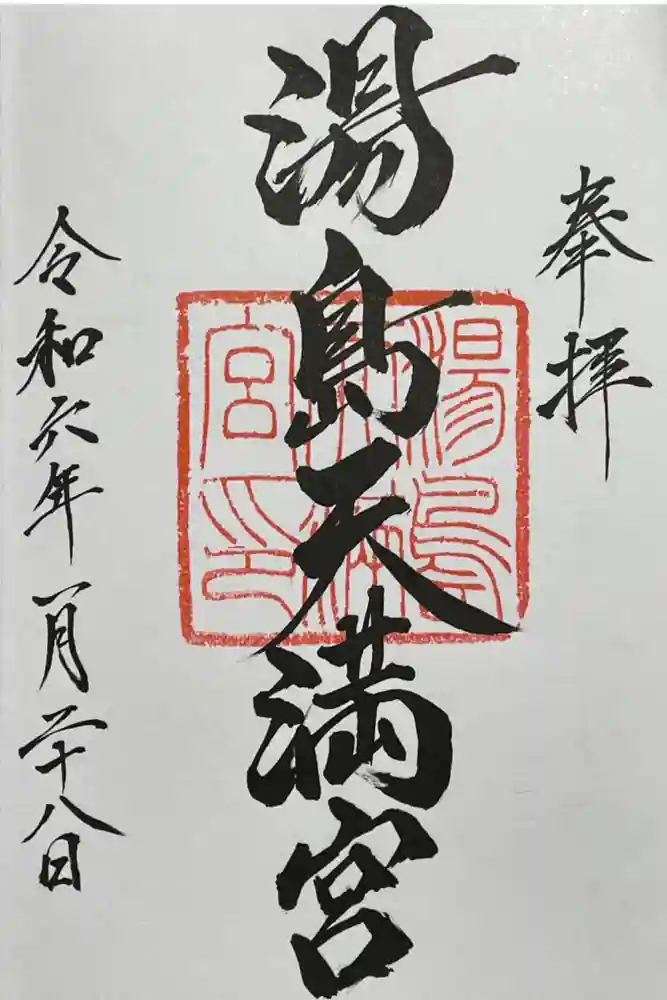 奉拝
湯島天満宮
湯島
天満
宮印
令和六年一月二十八日